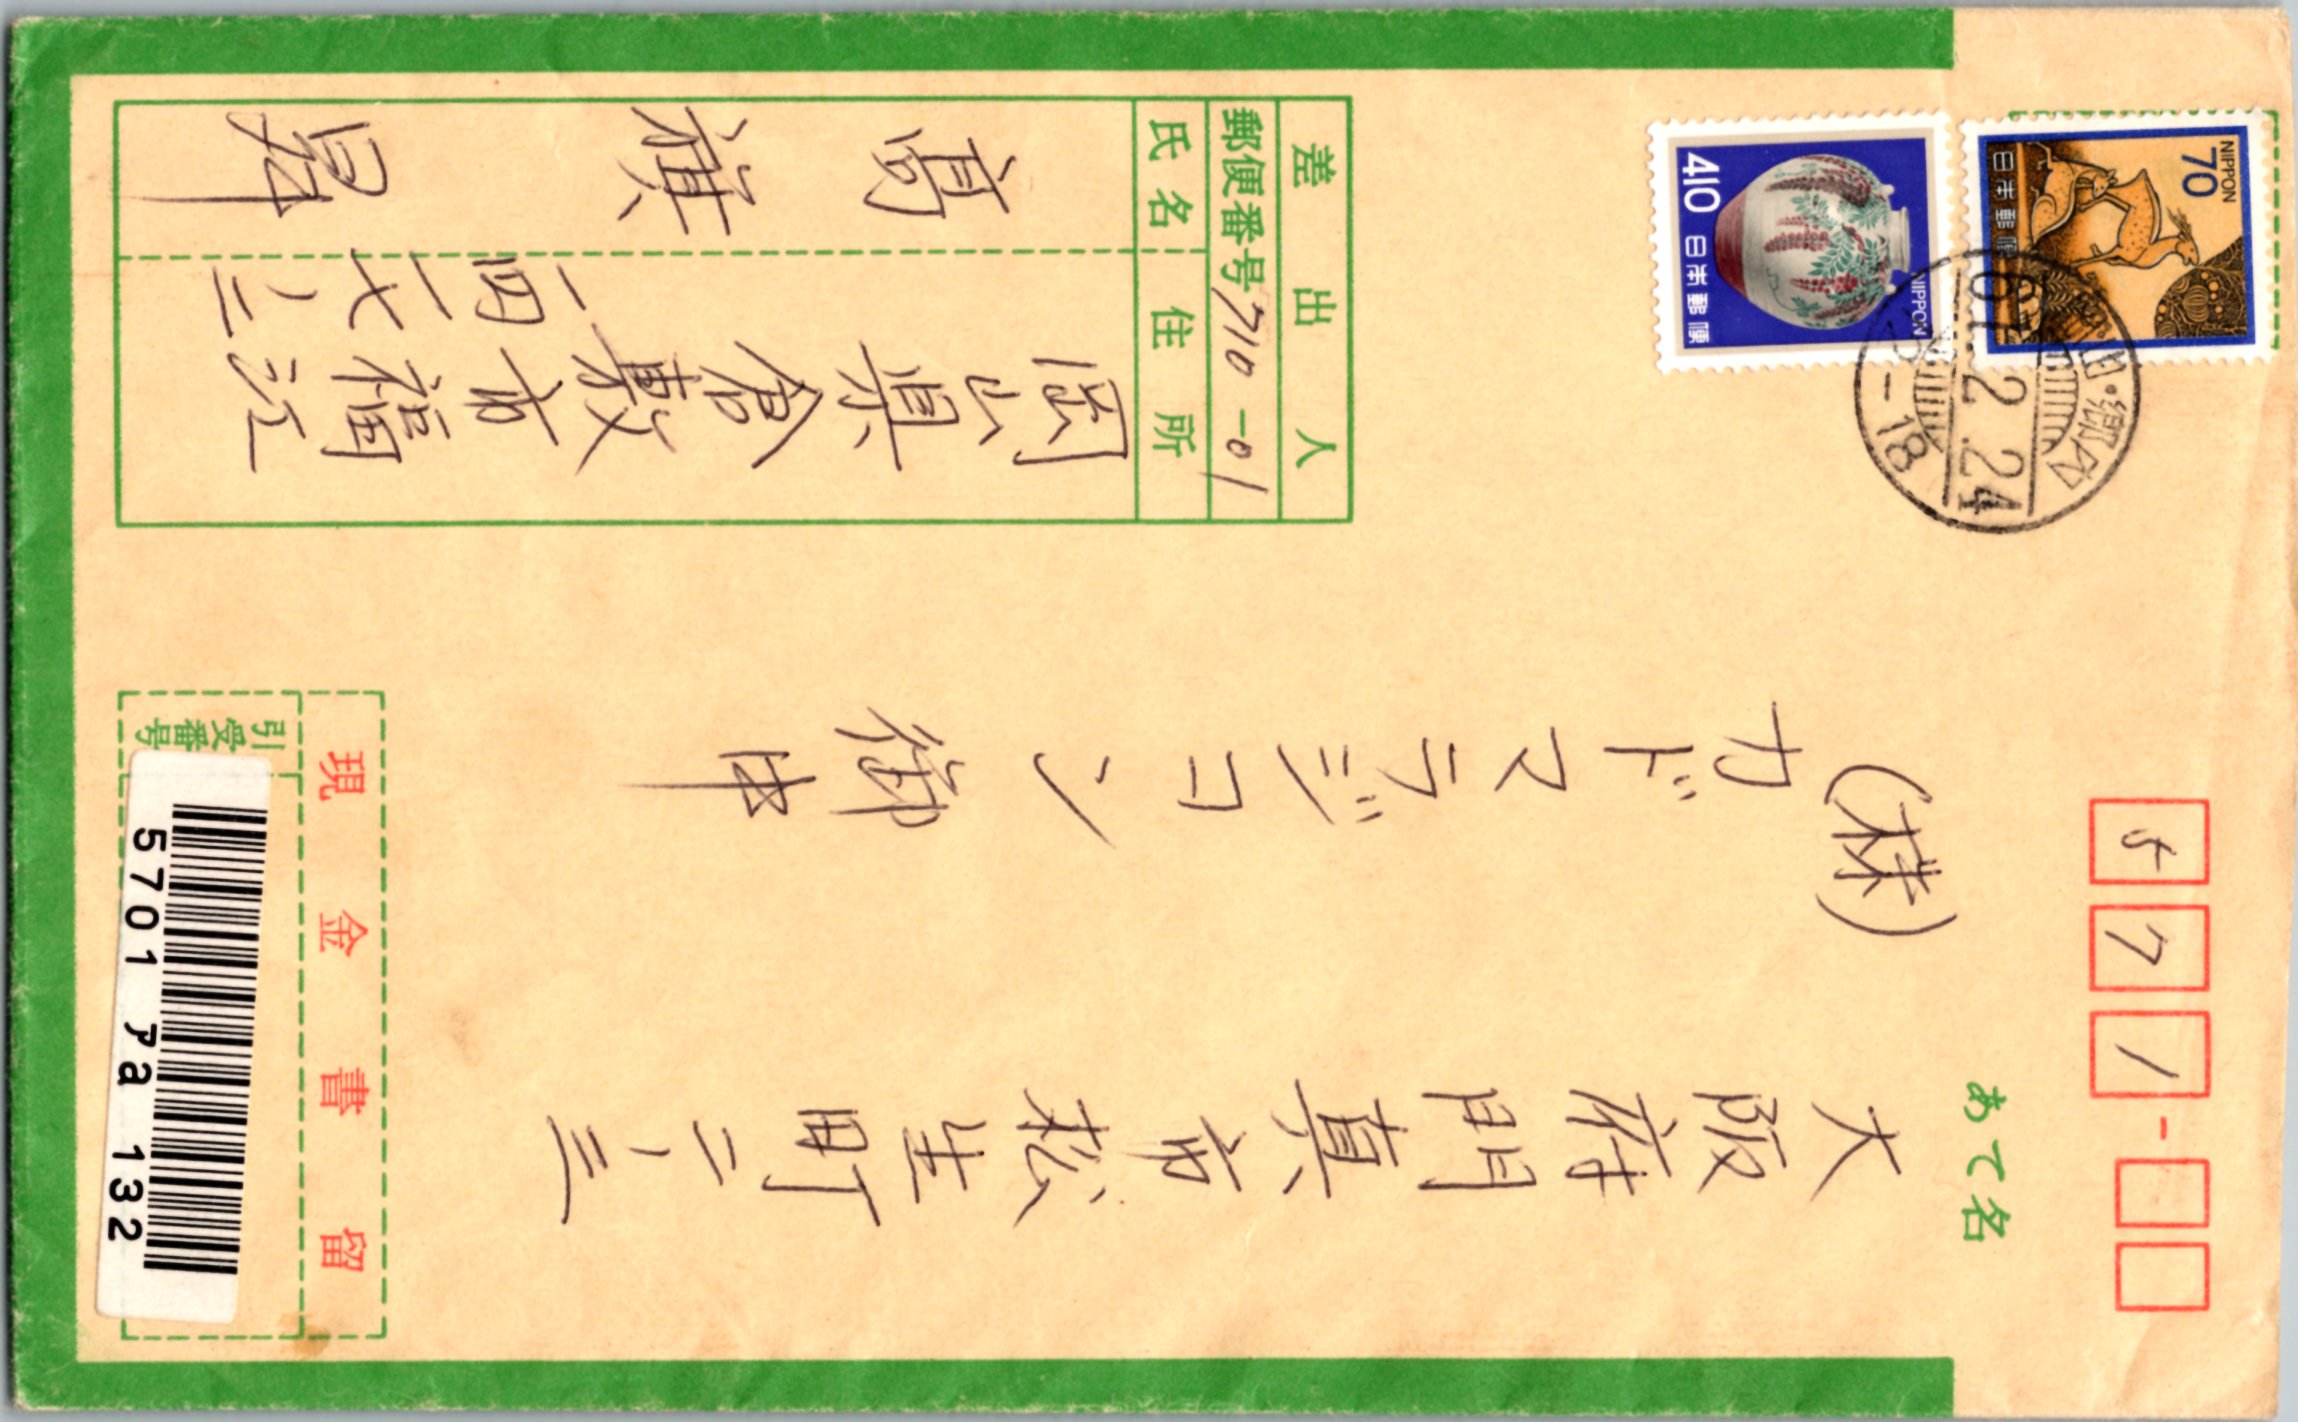 571-
あて名
大阪府門真市松生町二ノ三
(株)カドマラジコン御中
NIPPON
70
日本郵便
NIPPON
410
日本郵便
61.2.24
-18
差出人
郵便番号 710-01
住所
氏名
岡山県倉敷市福江
一四一七ノ二
高旗昇
現金書留
引受番号
5701 ア a 132